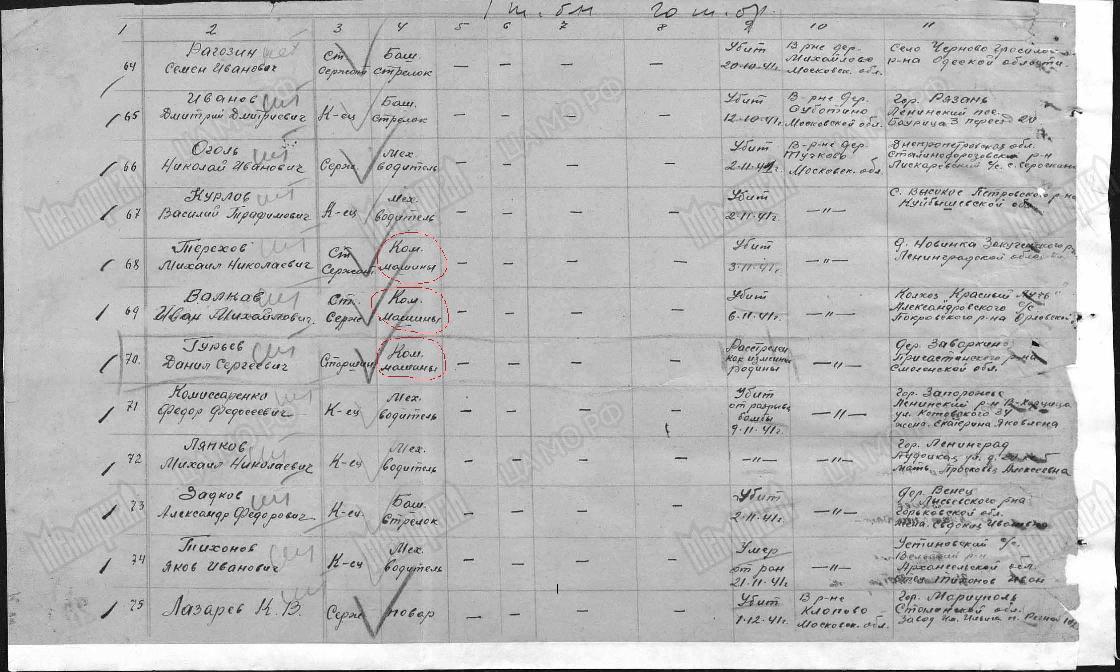 1 т. бн 20 т. бр.
1 2 3 4 5 6 7 8 9 10 11
64 Рагозин Семен Иванович Ст. Сержант Баш. Стрелок — — — — Убит 20-10-41г. В р-не дер. Михайлово Московск. обл. Село Черново р-на Одесской области
65 Иванов Дмитрий Дмитриевич К-ец Баш. Стрелок — — — — Убит 12-10-41г. В р-не дер. Суботино Московской обл. Гор. Рязань Ленинский пос.
66 Оголь Николай Иванович Серж. Мех. водитель — — — — Убит 2-11-41г. В-р-не дер. Тучково Московск. обл. Днепропетровская обл. р-н с/с с.
67 Курлов Василий Трафимович К-ец Мех. водитель — — — — Убит 2-11-41г. —"— с. Высокое Петровского р-на Куйбышевской обл
68 Терехов Михаил Николаевич Ст Сержант Ком. машины — — — — Убит 3-11-41г. —"— д. Новинка Ленинградской области
69 Валков Иван Михайлович Ст. Серж Ком. машины — — — — Убит 6-11-41г. —"— Колхоз "Красный Путь" Александровского с/с. Покровского р-на Орловской
70. Гурьев Данил Сергеевич Старшина Ком. машины — — — — Расстрелен как изменник родины —"— Дер. Заваркино р-на Смоленской обл.
71 Комиссаренко Федор Федосеевич К-ец Мех. водитель — — — — Убит от разрыва бомбы 9-11-41г. —"— Гор. Запорожье Ленинский р-н ул. Котовского 34 жена. Екатерина Яковлевна
72 Ляпков Михаил Николаевич К-ец Мех. водитель — — — — —"— —"— Гор. Ленинград ул. д. мать Просковья Алексеевна
73 Задков Александр Федорович К-ец Баш. Стрелок — — — — Убит 2-11-41г. —"— Дер. Венец р-на Горьковской обл. жена. Евдокия Ивановна
74 Тихонов Яков Иванович К-ец Мех. водитель — — — — Умер от ран 21-11-41г. —"— Устиновский с/с. р-н Архангельской обл. отец Тихонов Иван
75 Лазарев К. В Серж повар — — — — Убит 1-12-41г. В р-не Клопово Московск. обл. Гор. Мариуполь Сталинской обл. Завод им. Ильича п.